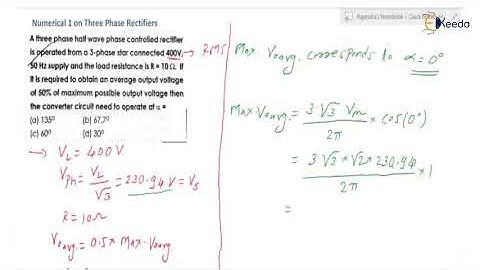 Rajendra's Notebook
Ekeeda
Numerical 1 on Three Phase Rectifiers
A three phase half wave phase controlled rectifier
is operated from a 3-phase star connected 400V,
50 Hz supply and the load resistance is R = 10 Ω. If
it is required to obtain an average output voltage
of 50% of maximum possible output voltage then
the converter circuit need to operate at α =
(a) 135° (b) 67.7°
(c) 60° (d) 30°
→ RMS
→ VL = 400 V
Vph = VL/√3 = 230.94 V = Vs
R = 10Ω
Voavg. = 0.5 × Max. Voavg.
Max. Voavg. corresponds to α = 0°
Max. Voavg. = 3·√3 Vm / 2π × cos(0°)
= 3·√3 × √2 × 230.94 / 2π × 1
=